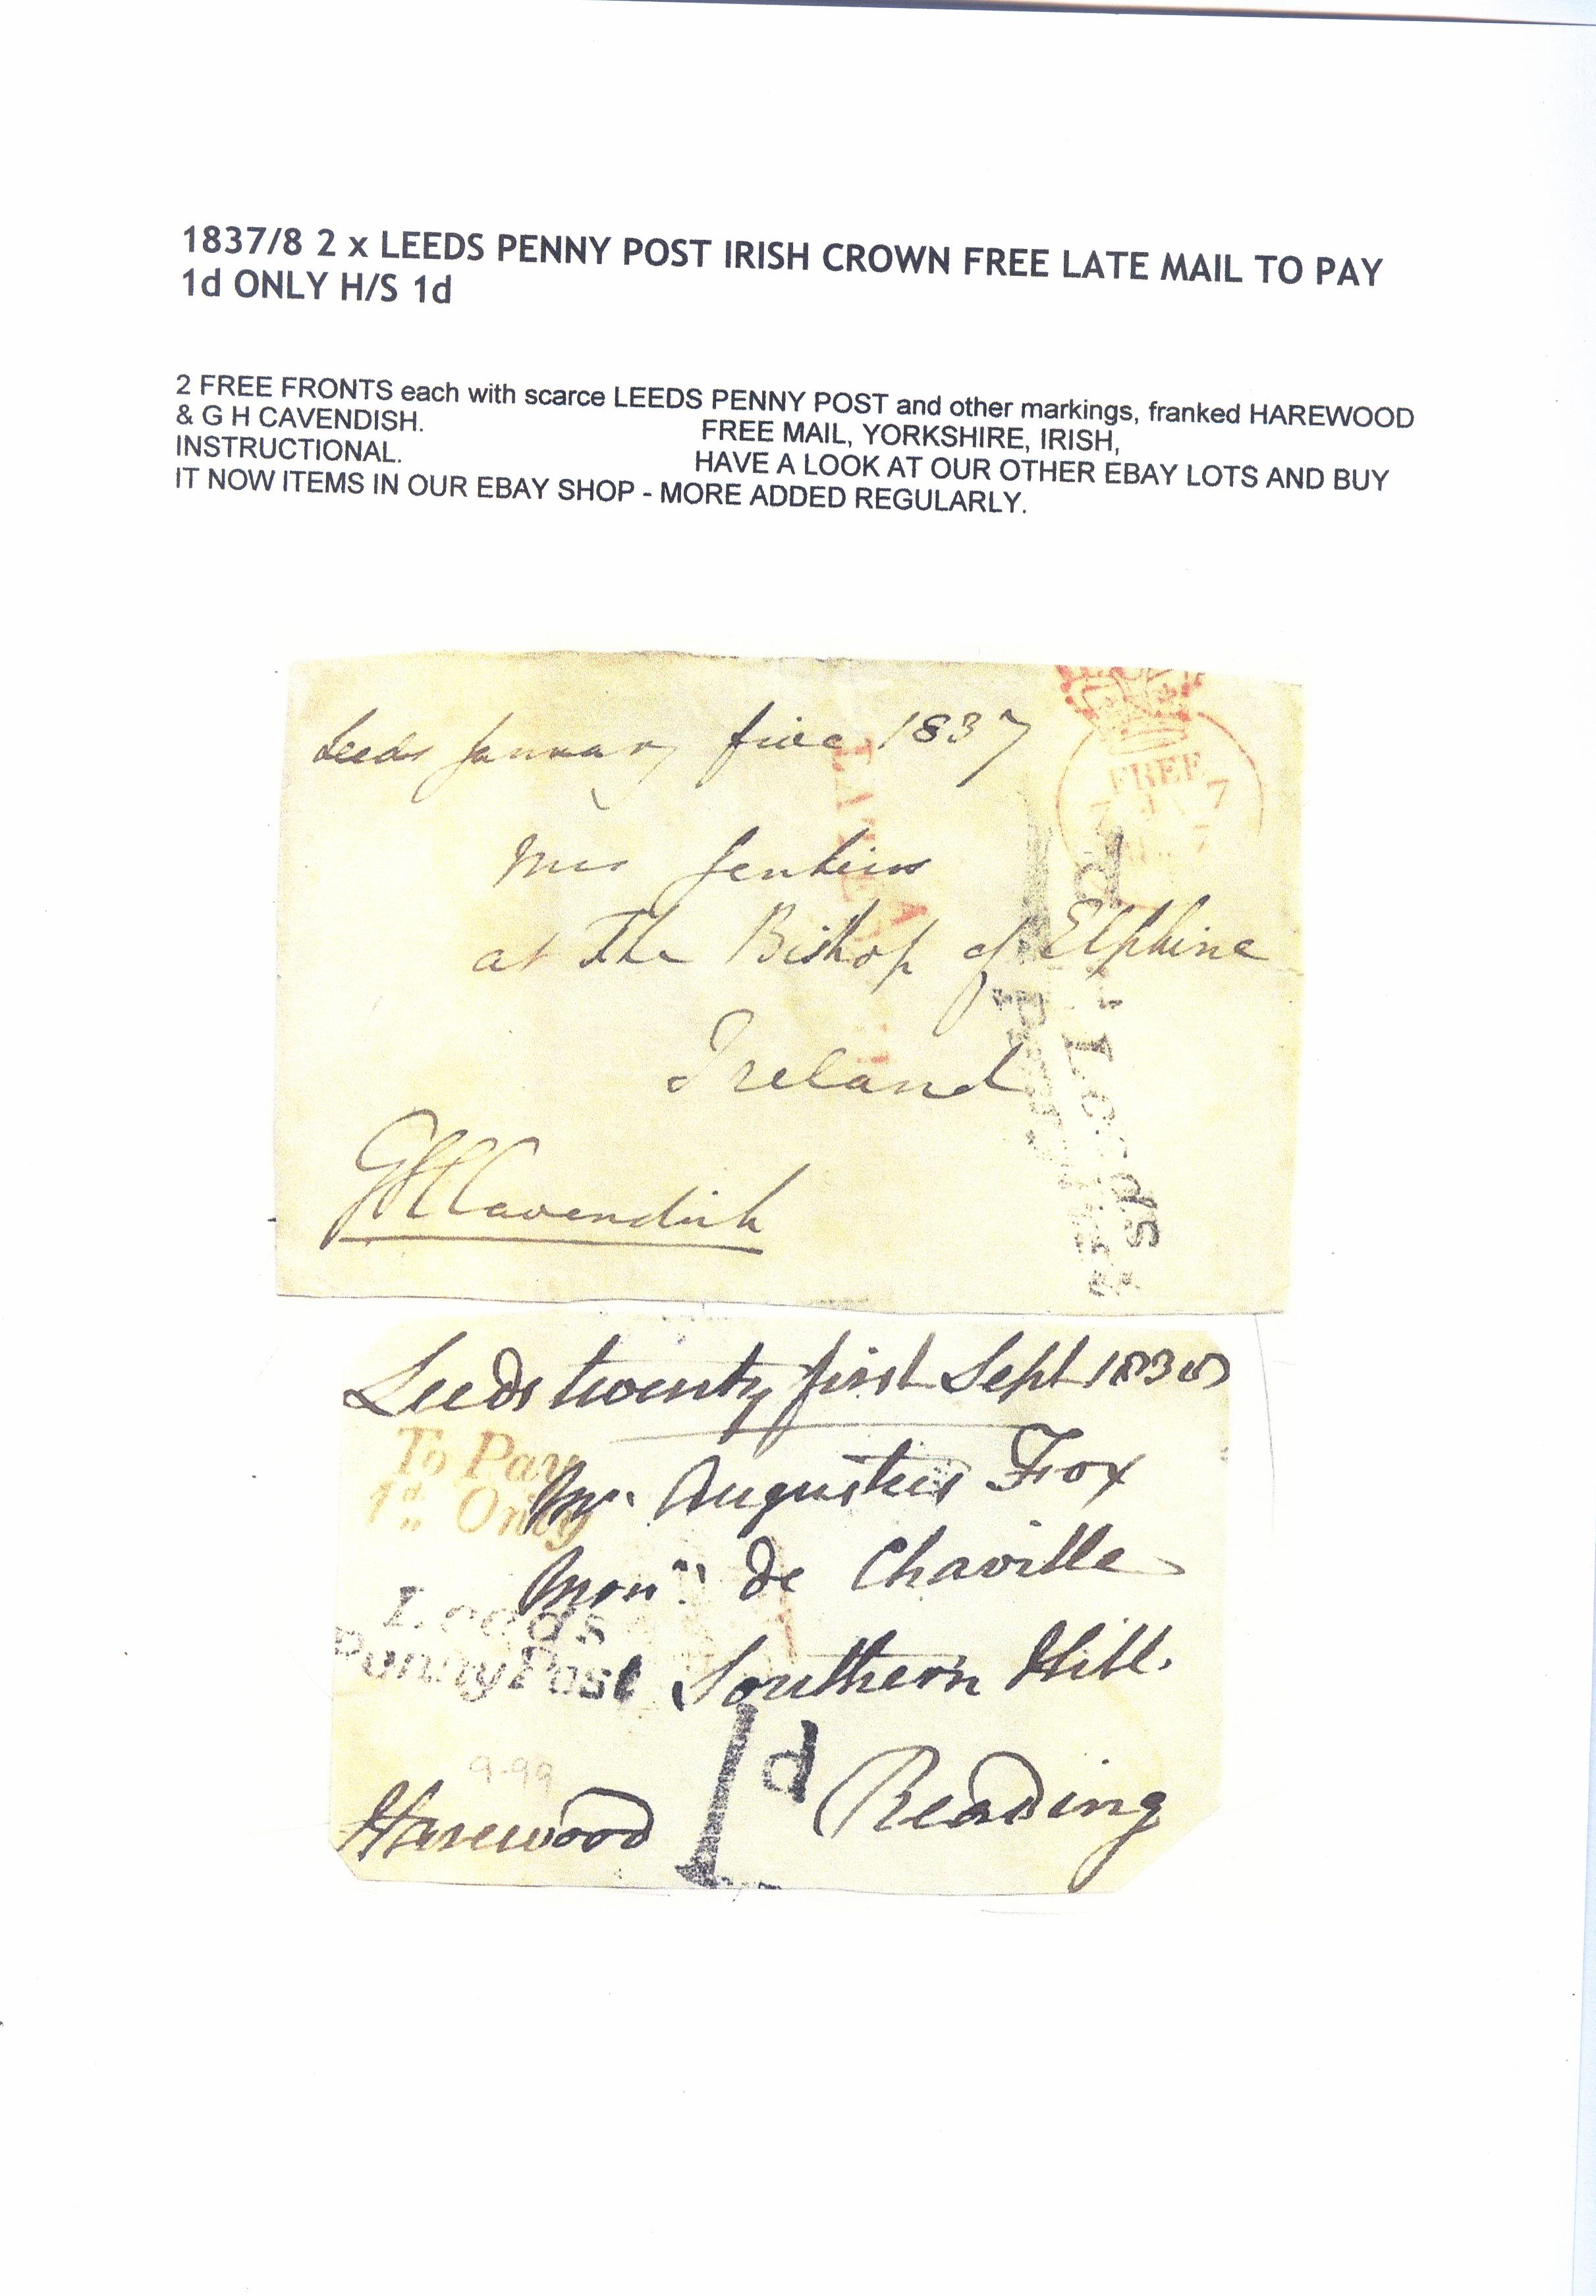 1837/8 2 x LEEDS PENNY POST IRISH CROWN FREE LATE MAIL TO PAY
1d ONLY H/S 1d
2 FREE FRONTS each with scarce LEEDS PENNY POST and other markings, franked HAREWOOD
& G H CAVENDISH. FREE MAIL, YORKSHIRE, IRISH,
INSTRUCTIONAL. HAVE A LOOK AT OUR OTHER EBAY LOTS AND BUY
IT NOW ITEMS IN OUR EBAY SHOP - MORE ADDED REGULARLY.
Leeds January five 1837
FREE
7 JA 7
LATE
Mrs Jenkins
at The Bishop of Elphine
Ireland
GHCavendish
1d
Leeds
Leeds twenty first Sept 1838
To Pay
1d Only
Mr. Augustus Fox
de Chaville
Leeds
Penny Post
Southern Hill.
1d
9-99
Harewood
Reading